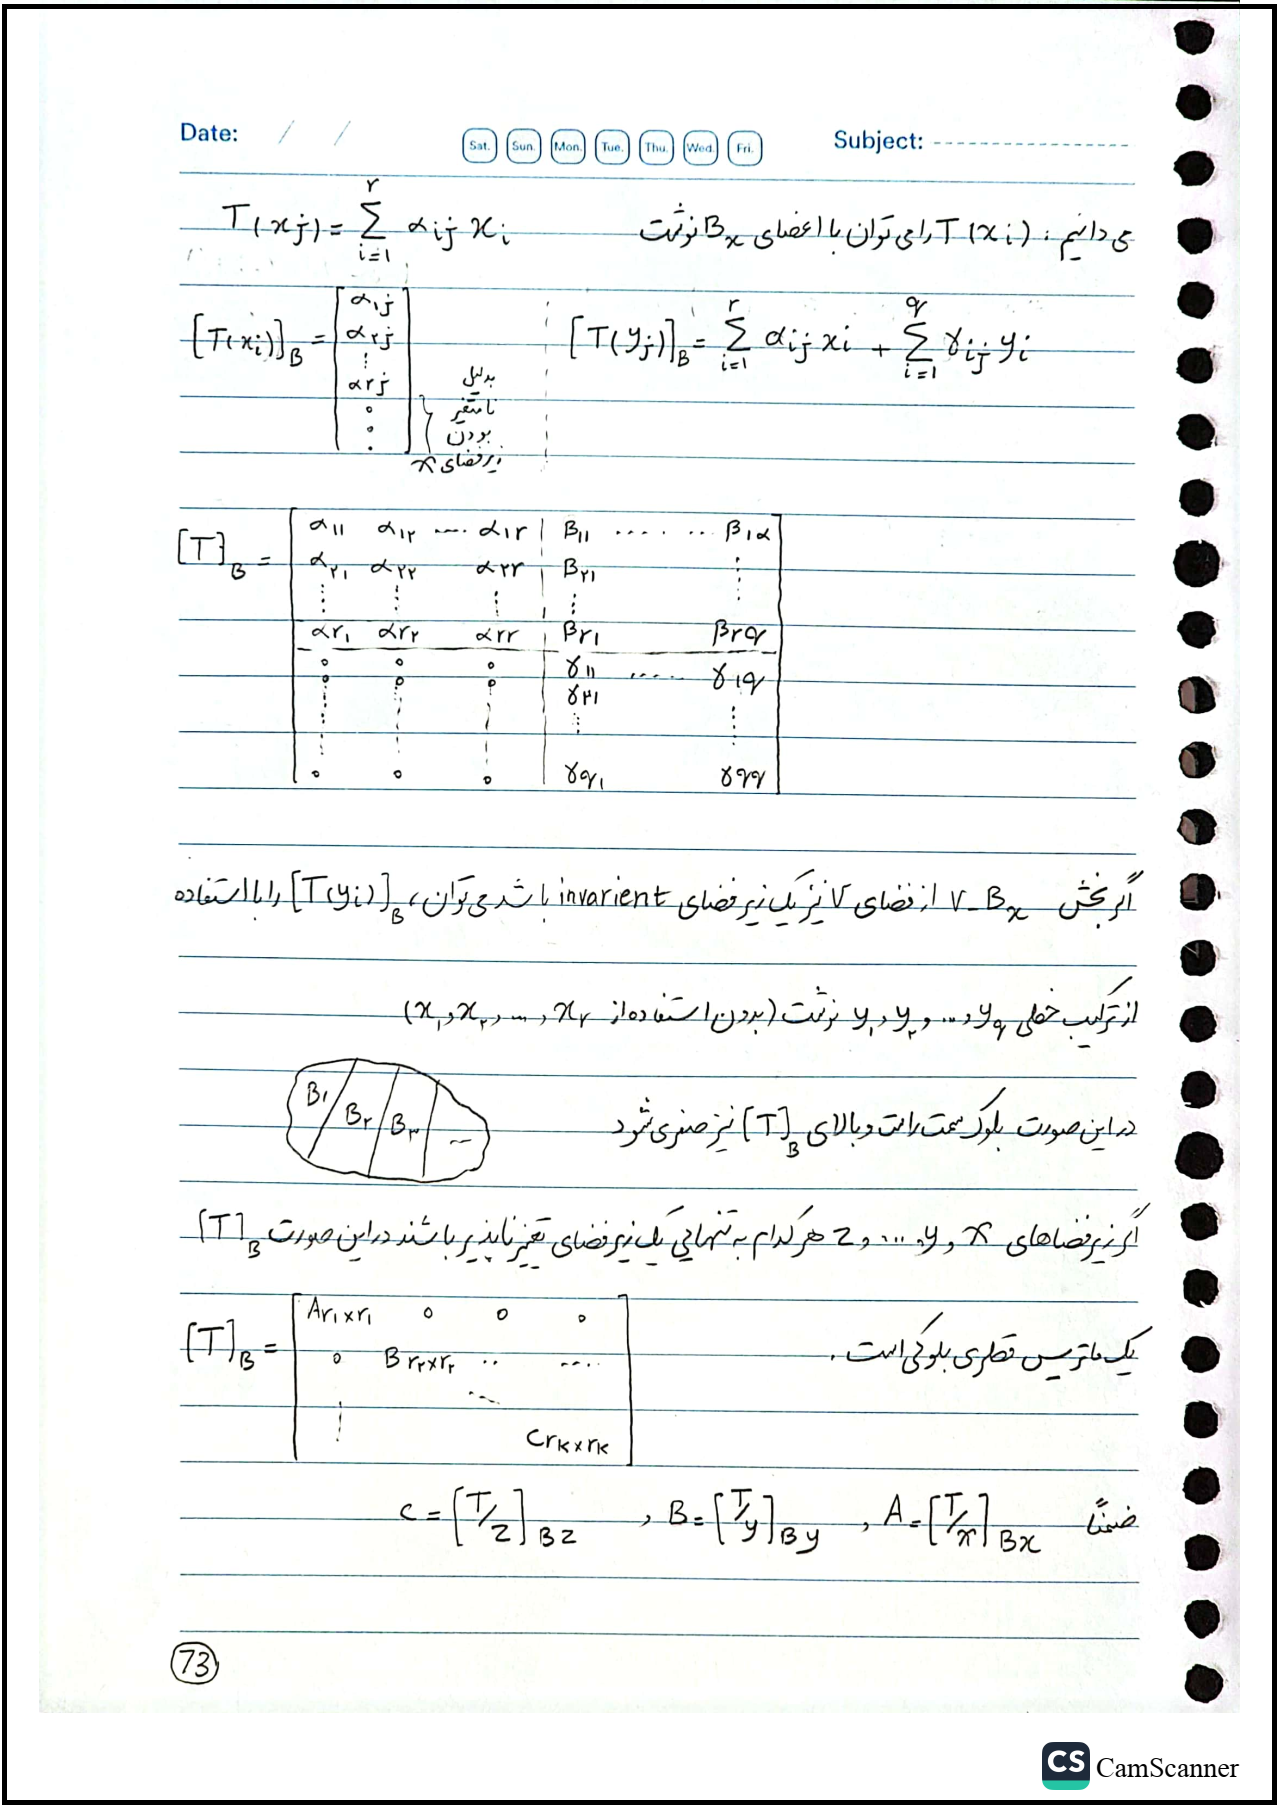 Date: / /
Sat. Sun. Mon. Tue. Thu. Wed. Fri.
Subject:
می دانیم : T(xi) را می توان با اعضای Bx نوشت T(xj) = Σ_{i=1}^{r} αij xi
[T(xi)]B = [α1j α۲j ⋮ αrj ० ० .] [T(yj)]B = Σ_{i=1}^{r} αij xi + Σ_{i=1}^{q} γij yi
بدلیل
نامتغیر
بودن
زیرفضای x
[T]B =
α11 α1۲ ---- α1r | B11 ..... .. β1α
α۲1 α۲۲ α۲r | B۲1 ⋮
⋮ ⋮ ⋮ | ⋮
αr1 αr۲ αrr | βr1 βrq
० ० ० | γ11 ..... γ1q
० ० ० | γ۲1
⋮ ⋮ ⋮ | ⋮ ⋮
० ० ० | γq1 γqq
اگر بخش V-Bx از فضای V نیز یک زیرفضای invarient باشد می توان، [T(yi)]B را با استفاده
از ترکیب خطی y1, y۲, ..., yq نوشت (بدون استفاده از x1, x۲, ..., xr)
B1 B۲ B۳ ...
در این صورت بلوک سمت راست و بالای [T]B نیز صفر می شود
اگر زیرفضاهای x و y, ... و z هر کدام به تنهایی یک زیرفضای تغییرناپذیر باشند در این صورت [T]B
یک ماتریس قطری بلوکی است .
[T]B =
Ar1×r1 ० ० ०
० Br۲×r۲ .. ....
⋮ ...
Crk×rk
ضمناً A = [T/x]Bx , B = [T/y]By , C = [T/z]Bz
73
CS CamScanner